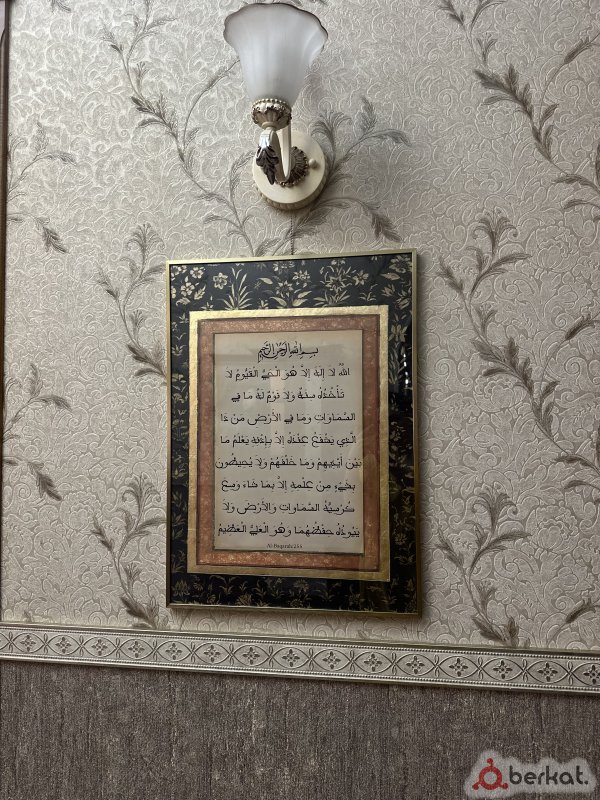 بسم الله الرحمن الرحيم
اللَّهُ لَا إِلَهَ إِلَّا هُوَ الْحَيُّ الْقَيُّومُ لَا
تَأْخُذُهُ سِنَةٌ وَلَا نَوْمٌ لَهُ مَا فِي
السَّمَاوَاتِ وَمَا فِي الْأَرْضِ مَنْ ذَا
الَّذِي يَشْفَعُ عِنْدَهُ إِلَّا بِإِذْنِهِ يَعْلَمُ مَا
بَيْنَ أَيْدِيهِمْ وَمَا خَلْفَهُمْ وَلَا يُحِيطُونَ
بِشَيْءٍ مِنْ عِلْمِهِ إِلَّا بِمَا شَاءَ وَسِعَ
كُرْسِيُّهُ السَّمَاوَاتِ وَالْأَرْضَ وَلَا
يَئُودُهُ حِفْظُهُمَا وَهُوَ الْعَلِيُّ الْعَظِيمُ
Al-Baqarah: 255
berkat.